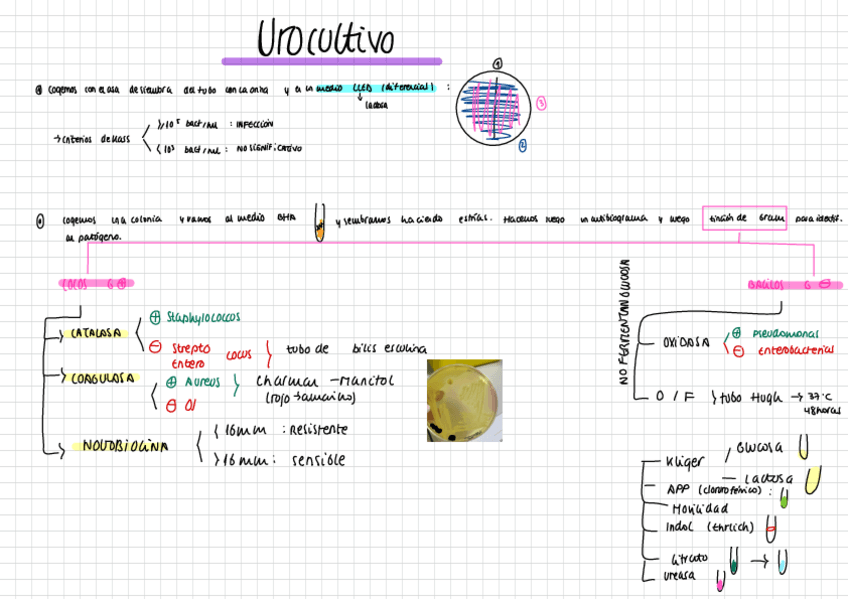 Urocultivo
cogemos con el asa de siembra del tubo con la orina y en un medio CLED (diferencial) :
lactosa
①
③
②
→ criterios de Kass
≥10⁵ bact/mL : INFECCIÓN
<10³ bact/mL : NO SIGNIFICATIVO
cogemos una colonia y vamos al medio BHA y sembramos haciendo estrías. Hacemos luego un antibiograma y luego tinción de Gram para identif.
al patógeno.
COCOS G ⊕
BACILOS G ⊖
NO FERMENTAN GLUCOSA
CATALASA
⊕ Staphylococcus
⊖ Strepto
entero
cocus
tubo de bilis esculina
COAGULASA
⊕ Aureus
⊖
Chapman - Manitol
(rojo → amarillo)
NOVOBIOCINA
<16mm : resistente
>16mm : sensible
OXIDASA
⊕ pseudomonas
⊖ enterobacterias
O / F } tubo Hugh → 37°C
48horas
Kliger
Glucosa
Lactosa
APP (cloruro férrico) :
Movilidad
Indol (Ehrlich)
Citrato
→
Ureasa